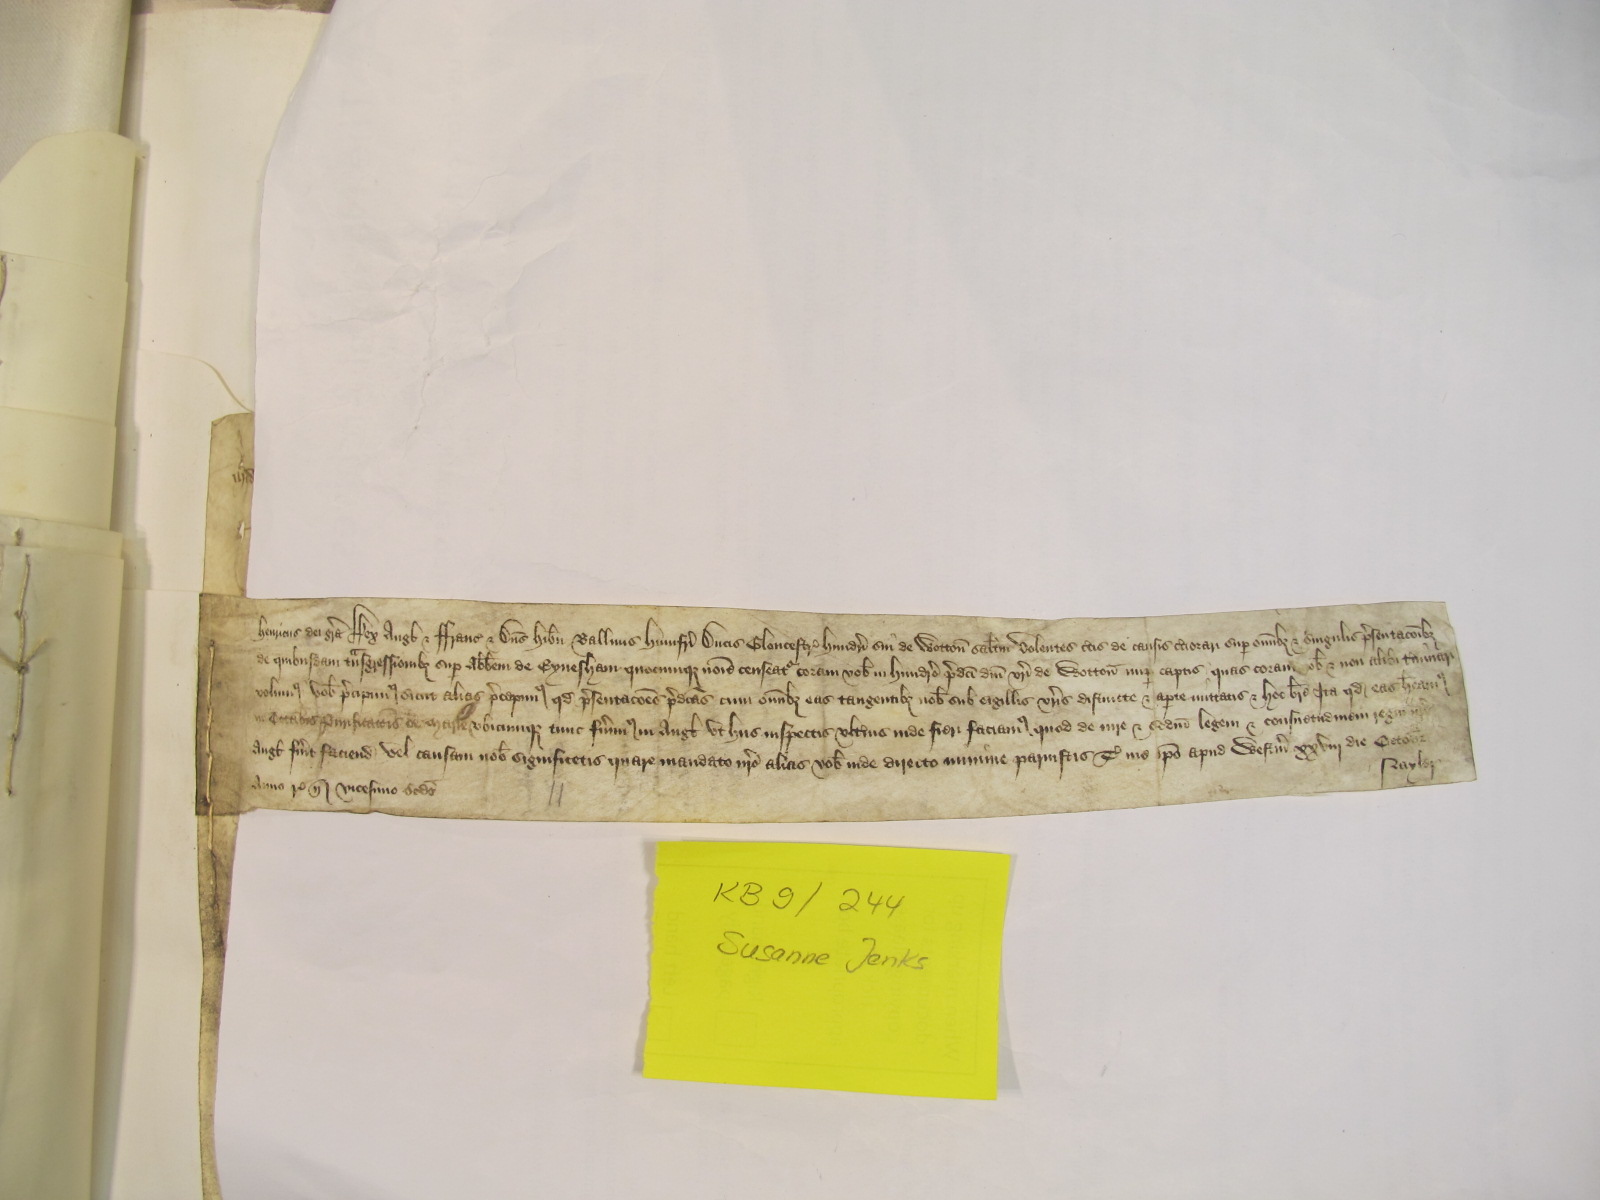 Henricus dei gra Rex Angl & Franc & Dns Hibn Ballivis Humfri Ducis Gloucestr hundri sui de Wotton saltm Volentes certis de causis cerciorari sup omibz & singulis presentacoibz
de quibusdam transgressionibz sup Abbem de Eynesham quocumqz noie censeatr coram vob in hundro predci din vri de Wotton nup captis quas coram nob & non alibi
volum vob precipim sicut alias precepim qd presentacoes predcas cum omibz eas tangentibz nob sub sigillis vris distincte & apte mittatis & hoc bre Ita qd eas heam
in Crastino Purificacois be Marie vbicumqz tunc fuim in Angl Vt hiis inspectis vlterius inde fieri faciam quod de iure & scdm legem & consuetudinem regni nri
Angl fuit faciend vel causam nob significetis quare mandato nro alias vob inde directo minime paruistis T me ipo apud Westm xxviij die Octobr
Anno r n vicesimo scdo
KB 9/ 244
Susanne Jenks